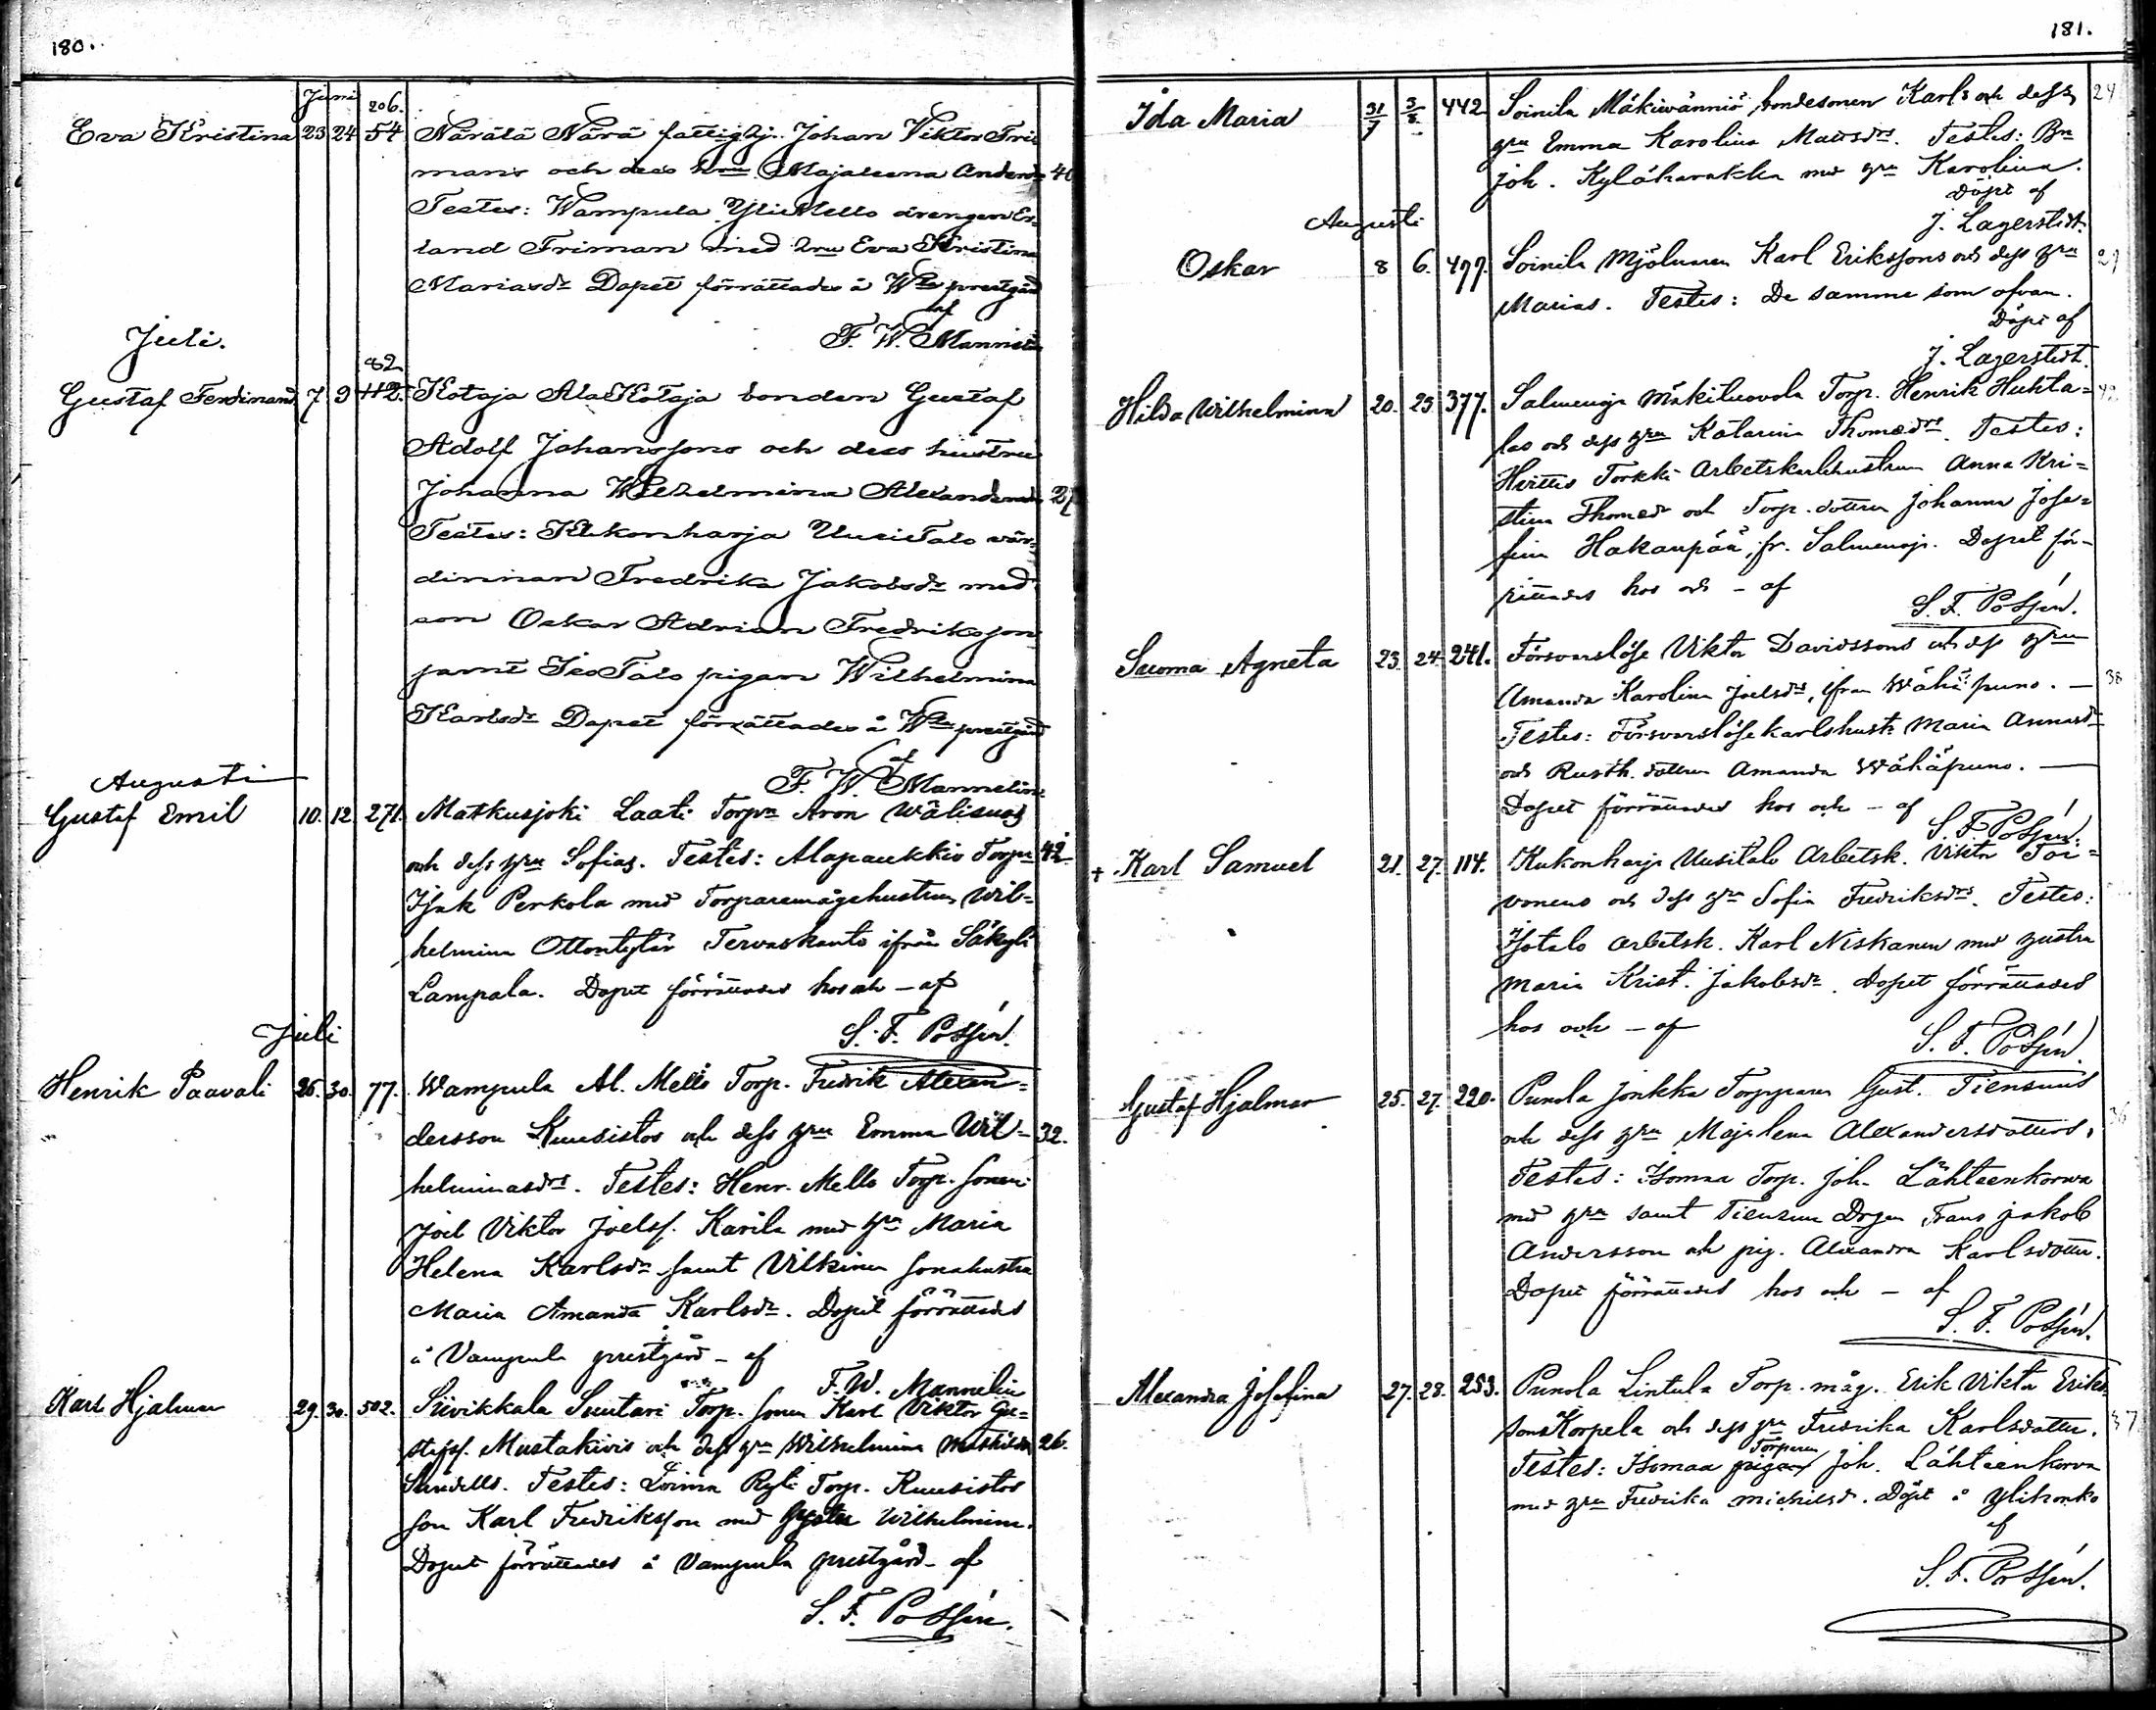 180.
Juni
206.
Eva Kristina 23 24 54 Närälä Närä fattighj. Johan Viktor Fri
mans och dess hru Majaleena Andersdr 40
Testes: Wampula YliMello drengen Er-
land Friman med hru Eva Kristina
Mariasdr Dopet förrättades å Wla prestgård
af
F. W. Mannelin
Juli.
82
Gustaf Ferdinand 7 9 112. Kotaja AlaKotaja bonden Gustaf
Adolf Johanssons och dess hustru
Johanna Wilhelmina Alexandersdr 27
Testes: Kukonharja UusiTalo vär-
dinnan Fredrika Jakobsdr med
son Oskar Adrian Fredriksson
samt IsoTalo pigan Wilhelmina
Karlsdr Dopet förrättades å Wla prestgård
af
F. W. Mannelin
Augusti
Gustaf Emil 10. 12. 271. Matkusjoki Laati Torpn Aron Wälisuos
och dess hru Sofias. Testes: Alapaukkio Torpn 42.
Isak Perkola med Torparemågshustrun Wil=
helmina Ottontytär Tervaskanto ifrån Säkylä
Lampala. Dopet förrättades hos och - af
S. F. Possén.
Juli
Henrik Paavali 26. 30. 77. Wampula Al. Mello Torp. Fredrik Alexan=
dersson Kuusistos och dess hru Emma Wil= 32.
helminasdrs. Testes: Henr. Mello Torp. sonen
Joel Viktor Joelss. Karila med hru Maria
Helena Karlsdr samt Vilkinen sonahustru
Maria Amanda Karlsdr. Dopet förrättades
å Vampula prestgård - af
F. W. Mannelin
Karl Hjalmar 29. 30. 502. Siivikkala Suutari Torp. sonen Karl Viktor Gu=
stafss. Mustakivis och dess hru Wilhelmina Mathilda 26.
Sandells. Testes: Loima Ryti Torp. Kuusistos
son Karl Fredriksson med hustru Wilhelmina.
Dopet förrättades å Vampula prestgård - af
S. F. Possén.
181.
Ida Maria 31/7 3/8 442 Soinila Mäkiwänniö bondesonen Karls och dess 24
hru Emma Karolina Mattsdrs. Testes: Bn
Joh. Kyläharakka med hru Karolina.
Döpt af
J. Lagerstedt.
Augusti
Oskar 8 6. 477. Soinila Mjölnaren Karl Erikssons och dess hru 29
Marias. Testes: De samma som ofvan.
Döpt af
J. Lagerstedt.
Hilda Wilhelmina 20. 23. 377. Salmenoja Mäkiluovola Torp. Henrik Huhta= 42
las och dess hru Katarina Thomædrs. Testes:
Hvittis Torkki Arbetskarlshustrun Anna Kri=
stina Thomædr och Torp. dottren Johanna Jose=
fina Hakanpää, fr. Salmenoja. Dopet för-
rättades hos och - af
S. F. Possén.
Suoma Agneta 23. 24. 241. Försvarslöse Viktor Davidssons och dess hru
Amanda Karolina Joelsdrs, ifrån Wähäpuno. — 38
Testes: Försvarslöse karlshustr. Maria Annasdr
och Rusth. dottren Amanda Wähäpuno. —
Dopet förrättades hos och - af
S. F. Possén.
+ Karl Samuel 21. 27. 114. Kukonharja Uusitalo Arbetsk. Viktor Toi=
vonens och dess hru Sofia Fredriksdrs. Testes:
Isotalo Arbetsk. Karl Niskanen med hustru
Maria Krist. Jakobsdr. Dopet förrättades
hos och - af
S. F. Possén.
Gustaf Hjalmar 25. 27. 220. Punola Jonkka Torpparen Gust. Tiensuus
och dess hru Majalena Alexandersdotters. 36
Testes: Isomaa Torp. Joh. Lähteenkorwa
med hru samt Tiensuu Drgen Frans Jakob
Andersson och pig. Alexandra Karlsdotter.
Dopet förrättades hos och - af
S. F. Possén.
Alexandra Josefina 27. 28. 253. Punola Lintula Torp. måg. Erik Viktor Eriks-
sons Korpela och dess hru Fredrika Karlsdotter. 37
Torparen
Testes: Isomaa pigan Joh. Lähteenkorva
med hru Fredrika Michelsd. Döpt å Ylihonko
af
S. F. Possén.